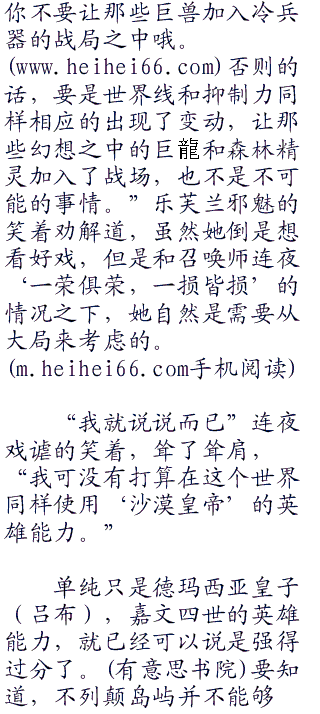 你不要让那些巨兽加入冷兵
器的战局之中哦。
(www.heihei66.com)否则的
话，要是世界线和抑制力同
样相应的出现了变动，让那
些幻想之中的巨龍和森林精
灵加入了战场，也不是不可
能的事情。”乐芙兰邪魅的
笑着劝解道，虽然她倒是想
看好戏，但是和召唤师连夜
‘一荣俱荣，一损皆损’的
情况之下，她自然是需要从
大局来考虑的。
(m.heihei66.com手机阅读)
“我就说说而已”连夜
戏谑的笑着，耸了耸肩，
“我可没有打算在这个世界
同样使用‘沙漠皇帝’的英
雄能力。”
单纯只是德玛西亚皇子
（吕布），嘉文四世的英雄
能力，就已经可以说是强得
过分了。(有意思书院)要知
道，不列颠岛屿并不能够